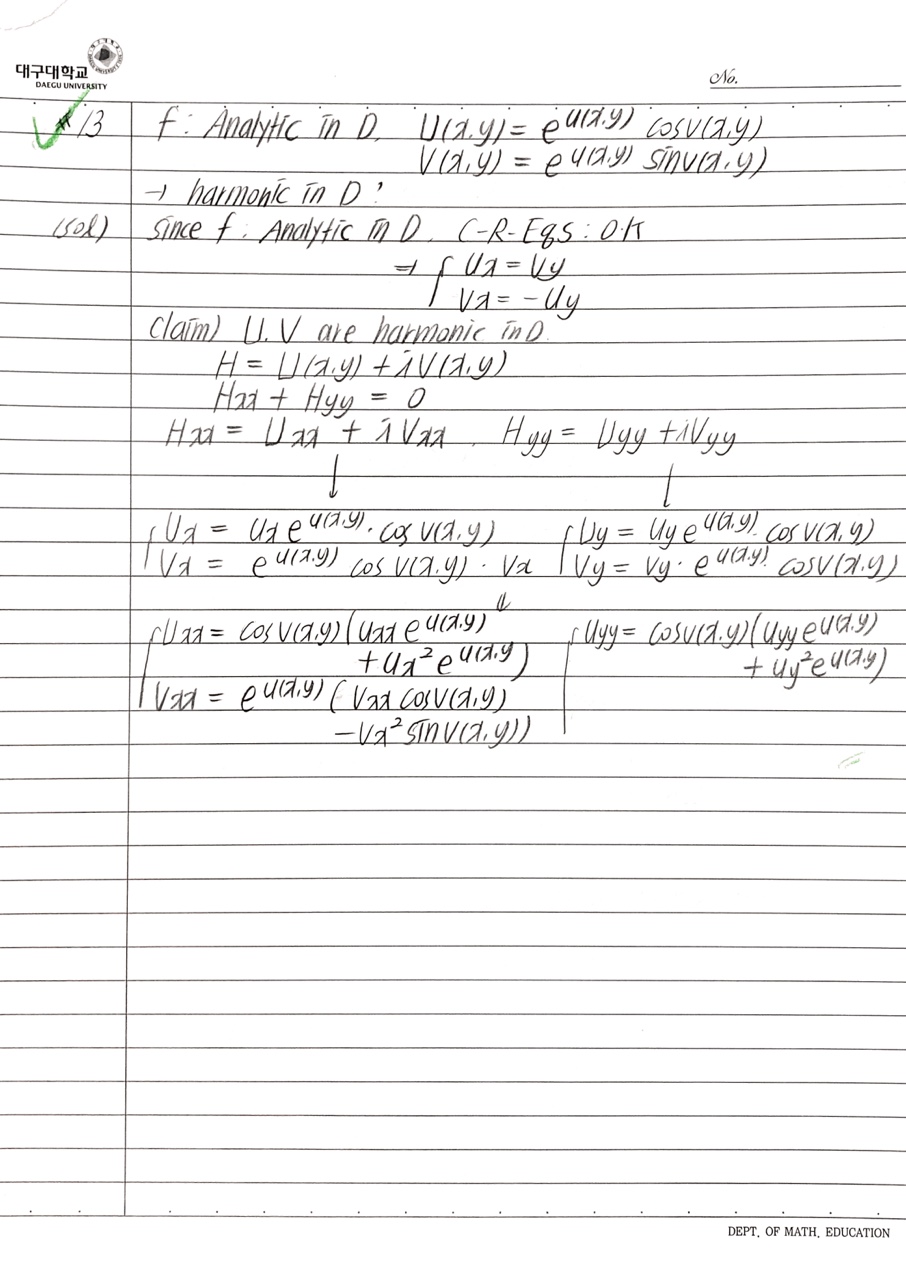 대구대학교
DAEGU UNIVERSITY
No.
#13 f : Analytic in D. U(x,y) = e^{u(x,y)} cosv(x,y)
V(x,y) = e^{u(x,y)} sinv(x,y)
→ harmonic in D ?
(sol) since f : Analytic in D. C-R-Eqs : O.K
⇒ { Ux = Vy
Vx = -Uy
Claim) U.V are harmonic in D.
H = U(x,y) + iV(x,y)
Hxx + Hyy = 0
Hxx = Uxx + iVxx . Hyy = Uyy + iVyy
↓ ↓
{ Ux = Ux e^{u(x,y)} · cos V(x,y) { Uy = Uy e^{u(x,y)} · cos V(x,y)
Vx = e^{u(x,y)} cos V(x,y) · Vx Vy = Vy · e^{u(x,y)} cosV(x,y)
↓
{ Uxx = cosV(x,y) (Uxx e^{u(x,y)} { Uyy = cosv(x,y) (Uyy e^{u(x,y)}
+ Ux² e^{u(x,y)}) + Uy² e^{u(x,y)})
Vxx = e^{u(x,y)} (Vxx cosV(x,y)
-Vx² sin V(x,y))
DEPT. OF MATH. EDUCATION